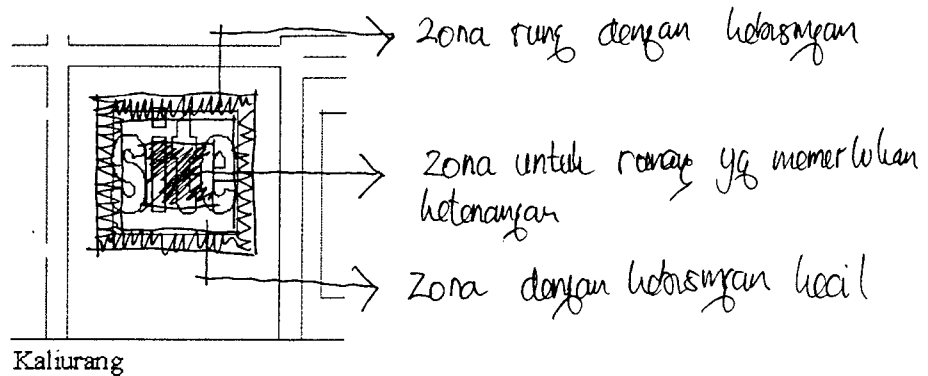 zona rung dengan kebisingan
zona untuk ruang yg memerlukan
ketenangan
zona dengan kebisingan kecil
Kaliurang